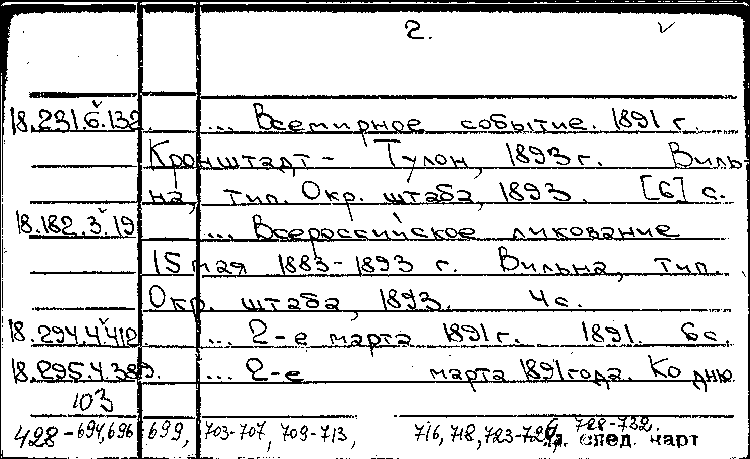 2.
18.231.6.132 ... Всемирное событие. 1891 г.
Кронштадт - Тулон, 1893 г. Виль-
на, тип. Окр. штаба, 1893. [6] с.
18.182.3.19 ... Всероссийское ликование
15 мая 1883-1893 г. Вильна, тип.
Окр. штаба, 1893. 4 с.
18.294.4.412 ... 2-е марта 1891 г. 1891. 6 с.
18.295.4.389. ... 2-е марта 1891 года. Ко дню
103
428-694,696 699, 703-707, 709-713, 716, 718, 723-726, 728-732.
след. карт